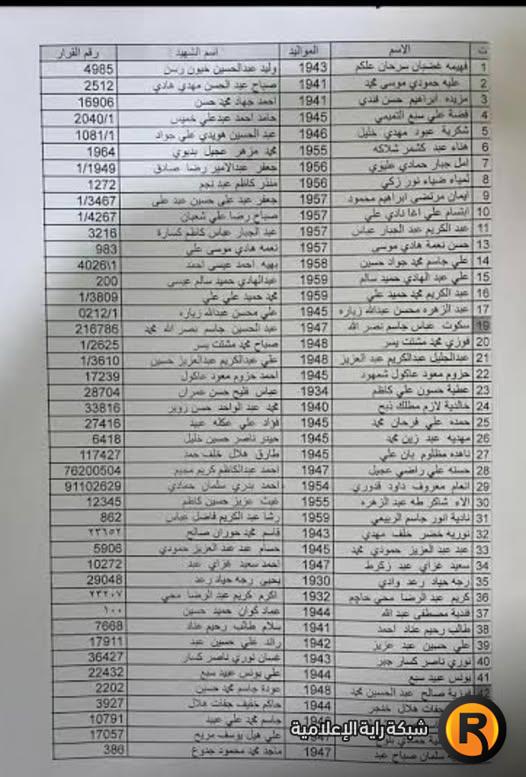 ت الاسم المواليد اسم الشهيد رقم القرار
1 فهيمه غضبان سرحان علكم 1943 وليد عبدالحسين خيون رسن 4985
2 عليه حمودي موسى محمد 1941 صباح عبد الحسن مهدي هادي 2512
3 مزيده ابراهيم حسن فندي 1941 احمد جهاد محمد حسن 16906
4 فضة علي سبع التميمي 1945 حامد احمد عبدعلي خميس 2040/1
5 شكرية عبود مهدي خليل 1946 عبد الحسين هويدي علي جواد 1081/1
6 هناء عبد كشمر شلاكه 1955 محمد مزهر عجيل بديوي 1964
7 امل جبار حمادي عليوي 1956 جعفر عبدالامير رضا صادق 1/1949
8 لمياء ضياء نور زكي 1956 منذر كاظم عبد نجم 1272
9 ايمان مرتضى ابراهيم محمود 1957 جعفر عبد علي حسين عبد علي 1/3467
10 ابتسام علي اغا نادي علي 1957 صباح رضا علي شعبان 1/4267
11 عبد الكريم عبد الجبار عباس 1957 عبد الجبار عباس كاظم كسارة 3216
13 حسن نعمة هادي موسى 1957 نعمه هادي موسى علي 983
14 علي جاسم محمد جواد حسين 1958 بهيه احمد عيسى احمد 4026\1
15 علي عبد الهادي حميد سالم 1959 عبدالهادي حميد سالم عيسى 200
16 عبد الكريم محمد حميد علي 1959 محمد حميد علي علي 1/3809
17 عبد الزهره محسن عبدالله زياره 1945 علي محسن عبدالله زياره 0212/1
19 سكوت عباس جاسم نصر الله 1947 عبد الحسين جاسم نصر الله محمد 216786
20 فوزي محمد مشتت يسر 1948 صباح محمد مشتت يسر 1/2625
21 عبدالجليل عبدالكريم عبد العزيز 1948 علي عبدالكريم عبدالعزيز حسين 1/3610
22 حزوم معود عاكول شمهود 1945 احمد حزوم معود عاكول 17239
23 عطية حسون علي كاظم 1934 عباس فليح حسن عمران 28704
24 خالدية لازم مطلك ذبح 1940 محمد عبد الواحد حسن زوير 33816
25 حمده علي فرحان محمد 1945 فؤاد علي عكله عبيد 27416
26 مهديه عبد زين محمد 1945 حيدر ناصر حسين خليل 6418
27 ناهده مظلوم بان علي 1945 طارق هلال خلف حمد 117427
28 حسنه علي راضي عجيل 1947 احمد عبدالكاظم كريم 76200504
29 انعام معروف داود قدوري 1954 احمد بدري سلمان حمادي 91102629
30 الاء شاكر طه عبد الزهره 1955 غيث عزيز حسين كاظم 12345
31 نادية انور جاسم الربيعي 1959 رشا عبد الكريم فاضل عباس 862
32 نوريه خضر خلف مهدي 1943 قاسم محمد حوران صالح ٢٣٦٥٢
33 عبد عبد العزيز حمودي محمد 1945 حسام عبد عبد العزيز حمودي 5906
34 سعيد غزاي عبد زكرط 1947 احمد سعيد غزاي عبد 10272
35 رجه حياد رعد وادي 1930 يحيى رجه حياد رعد 29048
36 كريم عبد الرضا محي حاجم 1932 اكرم كريم عبد الرضا محي ٢٣٢٠٧
37 فندية مصطفى عبد الله 1944 عماد كوان حميد حسين ١٠٠
38 طالب رحيم عناد احمد 1941 سلام طالب رحيم عناد 7668
39 علي حسين عبد عزيز 1942 رائد علي حسين عبد 17911
40 نوري ناصر كسار جبر 1943 غسان نوري ناصر كسار 36427
41 يونس عبيد سبع 1944 علي يونس عبيد سبع 22432
42 صالح عبد الحسين محمد 1948 عودة جاسم محمد حسين 2202
جفات هلال خنجر 1944 حاكم جفات هلال 3927
جاسم محمد علي عبيد 10791
حمادي علي هيل يوسف مريح 17057
سلمان صباح عبد 1947 ماجد محمد محمود جدوع 386
شبكة راية الإعلامية
R